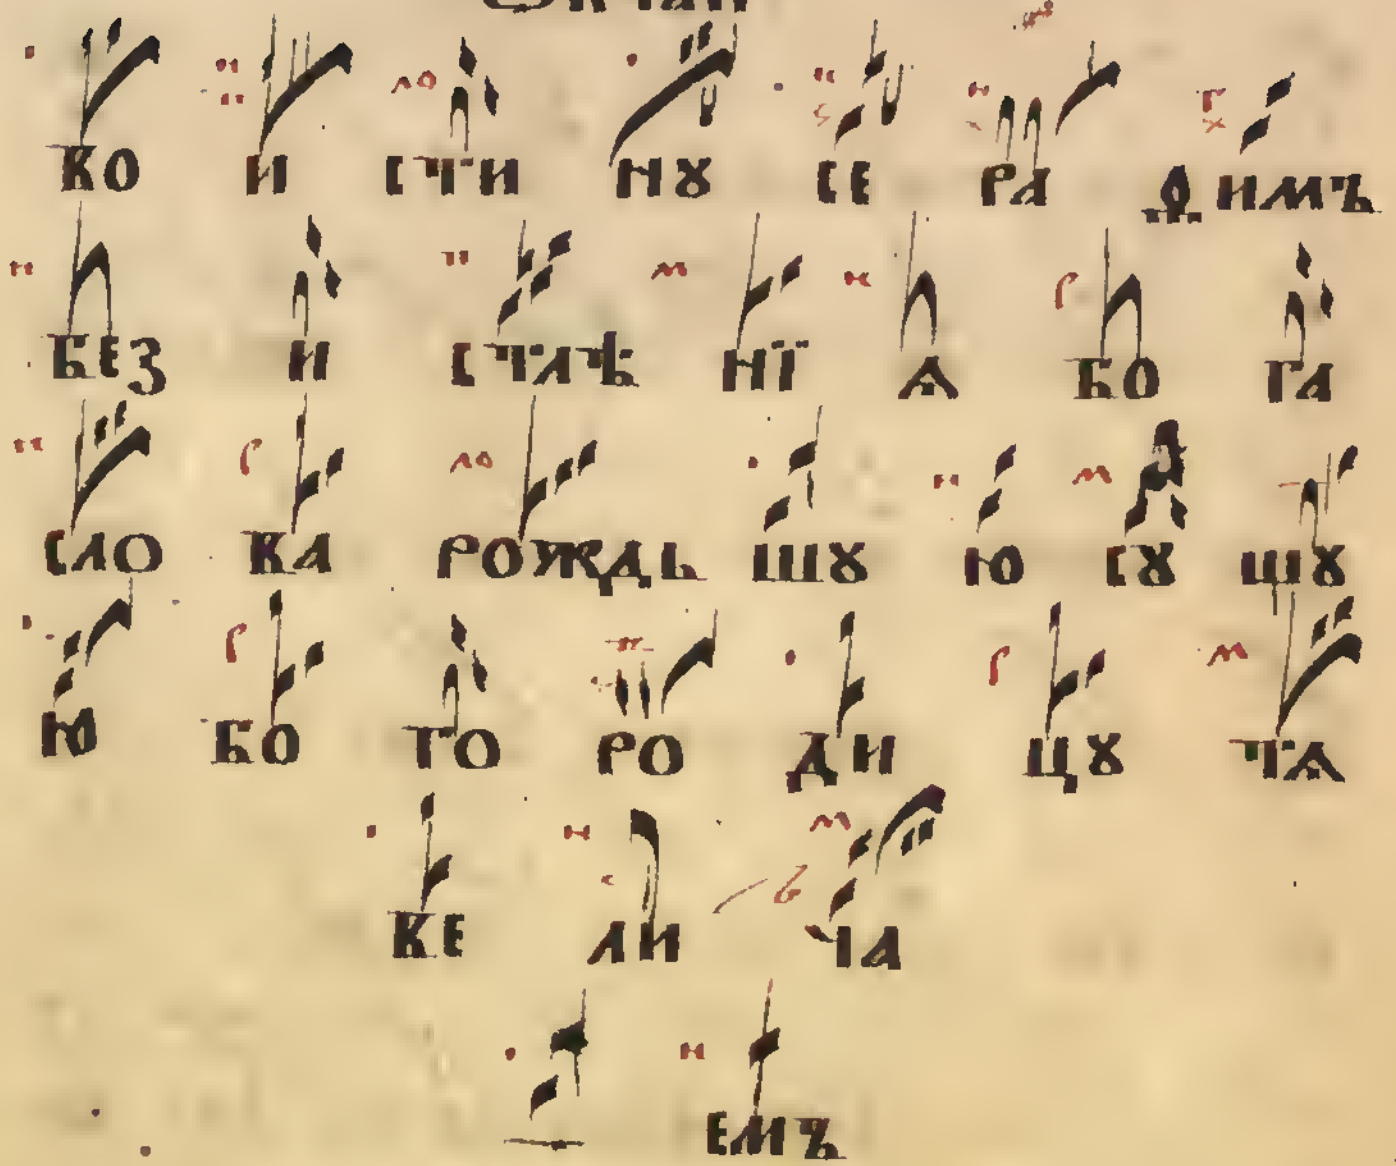 ко и сти нꙋ се ра ѳ имъ
без и стлѣ нї ѧ бо га
сло ва рождь шꙋ ю сꙋ щꙋ
ю бо го ро ди цꙋ тѧ
ве ли ча
емъ